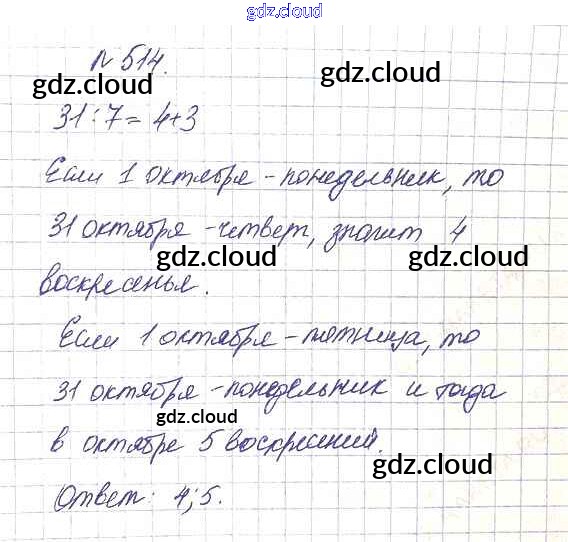 gdz.cloud
N 514.
gdz.cloud gdz.cloud
31 : 7 = 4+3
Если 1 октября - понедельник, то
gdz.cloud
31 октября - четверг, значит 4
gdz.cloud gdz.cloud
воскресенья.
Если 1 октября - пятница, то
gdz.cloud
31 октября - понедельник и тогда
gdz.cloud
в октябре 5 воскресений.
gdz.cloud
Ответ: 4; 5.
gdz.cloud